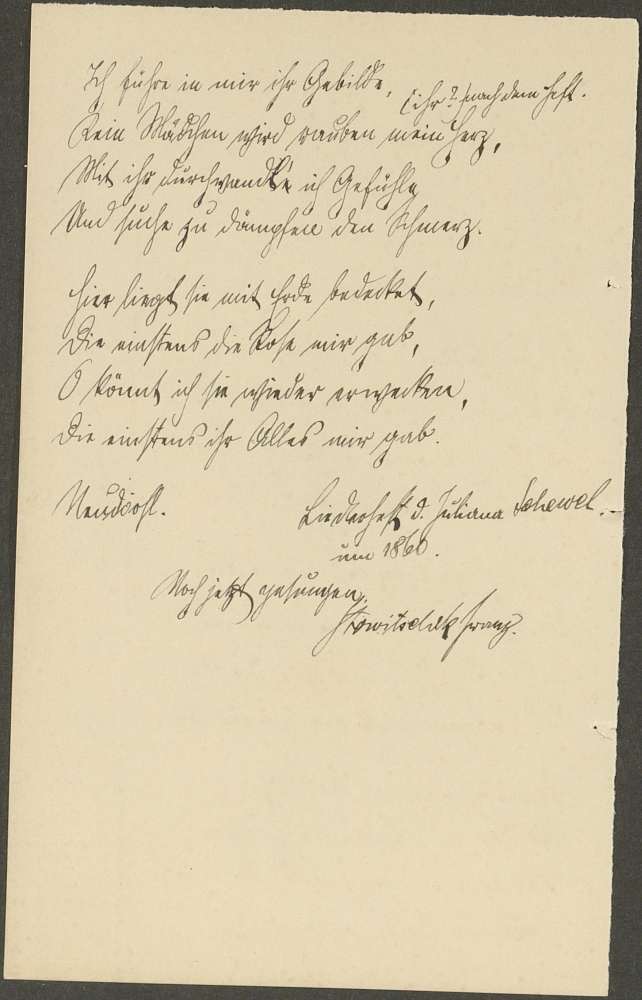 Ich führe in mir ihr Gebilde, (ihr?) nach dem Heft.
Kein Mädchen wird rauben mein Herz,
Mit ihr durchwandl'e ich Gefühle
Und suche zu dämpfen den Schmerz.
Hier liegt sie mit Erde bedecket,
Die einstens die Rose mir gab,
O könnt ich sie wieder erwecken,
Die einstens ihr Alles mir gab.
Neudorfl.
Liederheft d. Juliana Schewel.
um 1860.
Noch jetzt gesungen.
Franz.